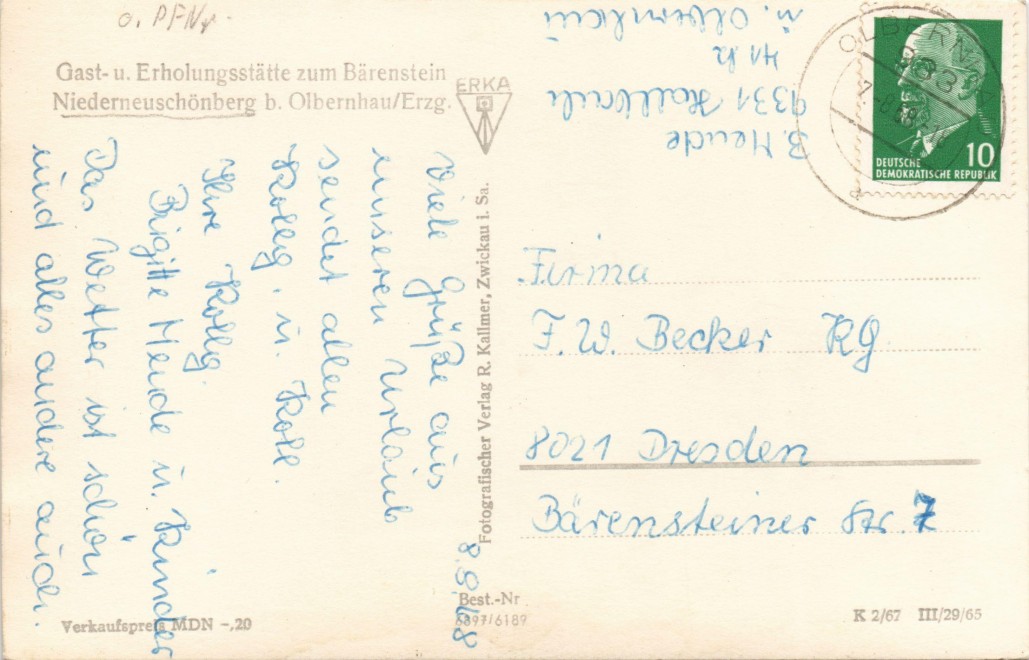 o. PFNr.
Gast- u. Erholungsstätte zum Bärenstein
Niederneuschönberg b. Olbernhau/Erzg.
ERKA
B. Mende
9331 Hallbach
41 h
ü. Olbernhau
OLBERNHAU
933
DEUTSCHE
DEMOKRATISCHE REPUBLIK
10
8.9.68
Viele Grüße aus
unseren Urlaub
sendet allen
Kolleg. u. Koll.
Ihre Kollg.
Brigitte Mende u. Kinder
Das Wetter ist schön
und alles andere auch.
Fotografischer Verlag R. Kallmer, Zwickau i. Sa.
Firma
F. W. Becker KG
8021 Dresden
Bärensteiner Str. 7
Verkaufspreis MDN -,20
Best.-Nr
6897/6189
K 2/67 III/29/65